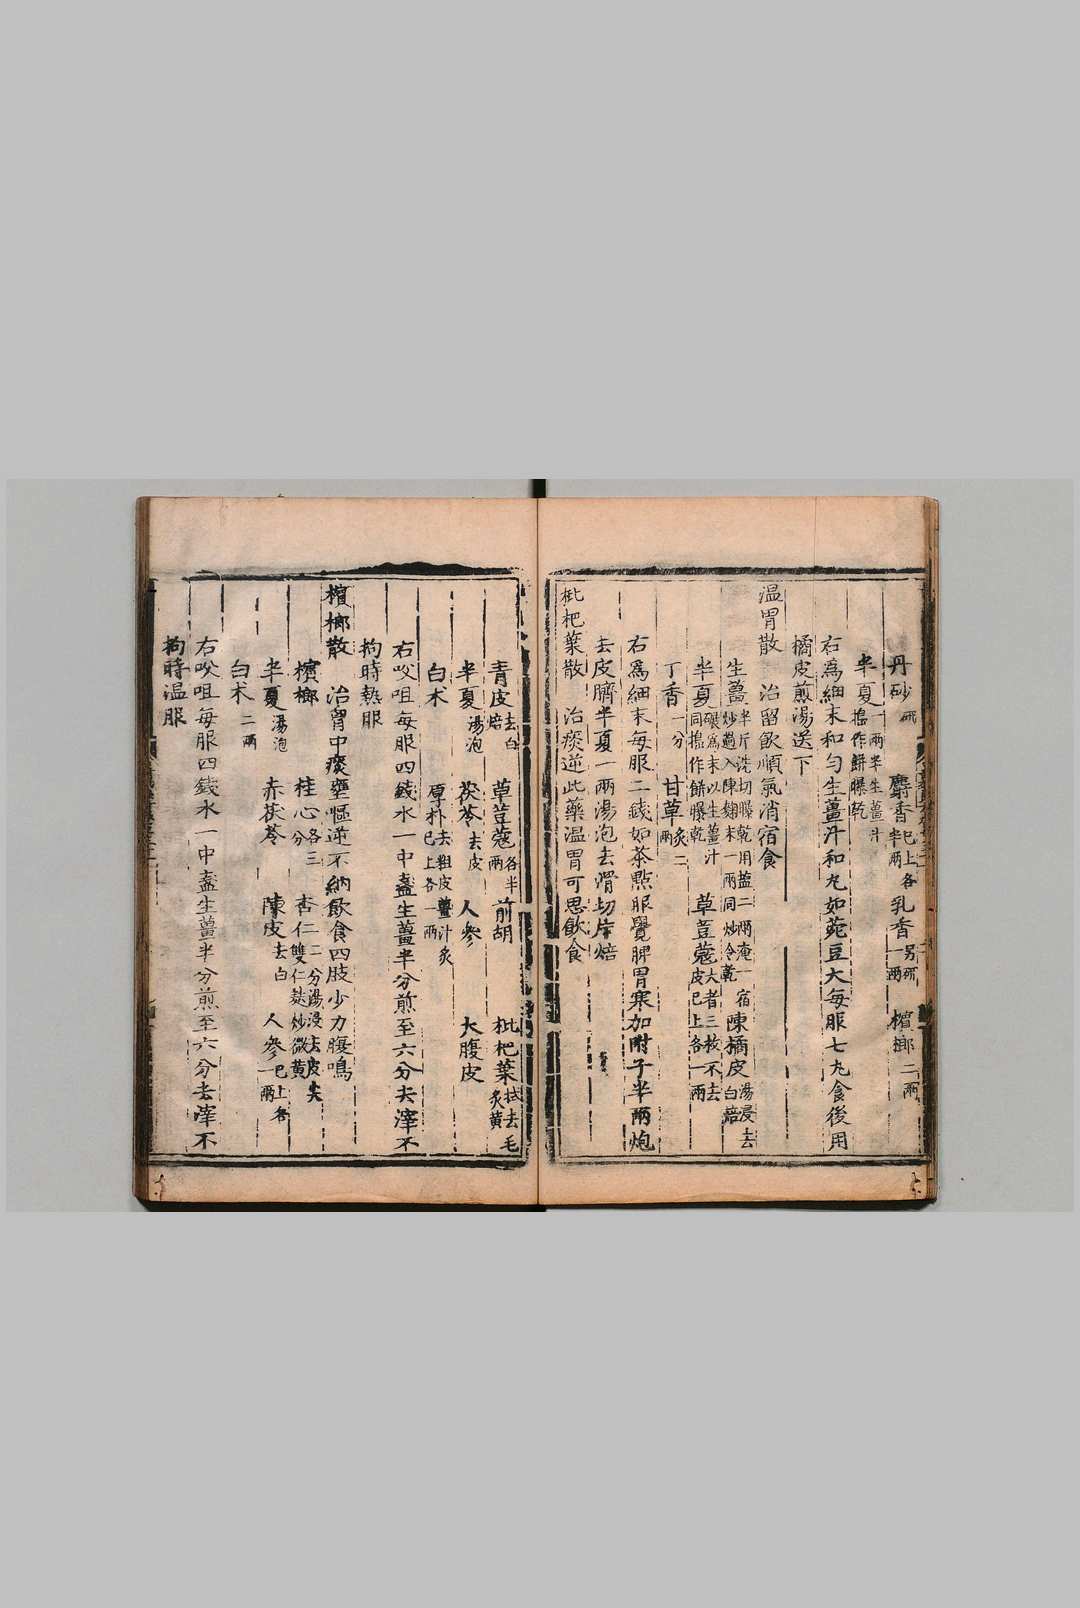 丹砂研 麝香已上各半兩 乳香另研一兩 檳榔二兩
半夏一兩半生薑汁搗作餅曝乾
右爲細末和勻生薑汁和丸如菉豆大每服七丸食後用
橘皮煎湯送下
温胃散 治留飲順氣消宿食
生薑半斤洗切曝乾用鹽二兩淹一宿炒過入陳麴末一兩同炒令乾 陳橘皮湯浸去白焙
半夏碾爲末以生薑汁同搗作餅曝乾 草荳蔻大者三枚不去皮已上各一兩
丁香一分 甘草炙二兩
右爲細末每服二錢如茶點服覺脾胃寒加附子半兩炮
去皮臍半夏一兩湯泡去滑切片焙
枇杷葉散 治痰逆此藥温胃可思飲食
青皮去白焙 草荳蔻各半兩 前胡 枇杷葉拭去毛炙黄
半夏湯泡 茯苓去皮 人參 大腹皮
白术 厚朴去粗皮薑汁炙已上各一兩
右㕮咀每服四錢水一中盞生薑半分煎至六分去滓不
拘時熱服
檳榔散 治胷中痰壅嘔逆不納飲食四肢少力腹鳴
檳榔 桂心各三分 杏仁二分湯浸去皮尖雙仁麩炒微黄
半夏湯泡 赤茯苓 陳皮去白 人參已上各一兩
白术二兩
右㕮咀每服四錢水一中盞生薑半分煎至六分去滓不
拘時温服